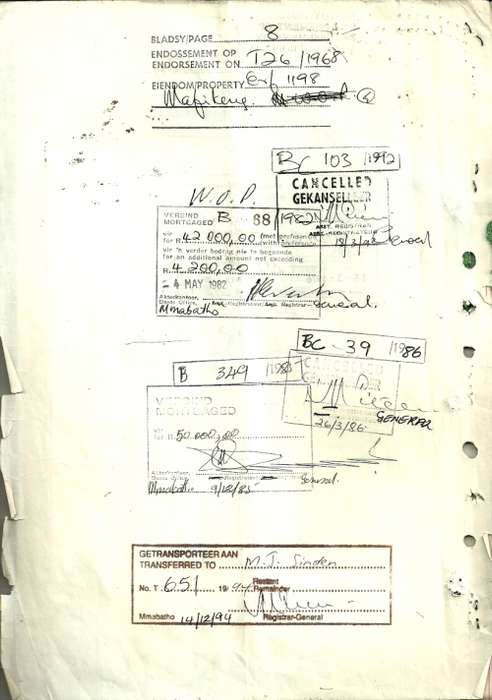 BLADSY/PAGE 8
ENDOSSEMENT OP
ENDORSEMENT ON T26/1968
EIENDOM/PROPERTY Erf 1198
Mafikeng
BC 103/1992
CANCELLED
GEKANSELLEER
18/3/92
W.O.P.
VERBIND
MORTGAGED B 88/1982
vir
for R 42 000,00
vir 'n verdere bedrag nie te bogaande
for an additional amount not exceeding
R 4 200,00
- 4 MAY 1982
Aktekantoor,
Deeds Office, Registrateur/ Registrar General.
Mmabatho
BC - 39/1986
CANCELLED
26/3/86
GENERAL
B 349/1985
VERBIND
MORTGAGED
vir
for R 50 000,00
Aktekantoor
Deeds Office Registrateur/ Registrar General.
Mmabatho 9/12/85
GETRANSPORTEER AAN
TRANSFERRED TO M.J. Sinden
Restant
No. T. 651 19 94 Remainder
Mmabatho 14/12/94 Registrar-General